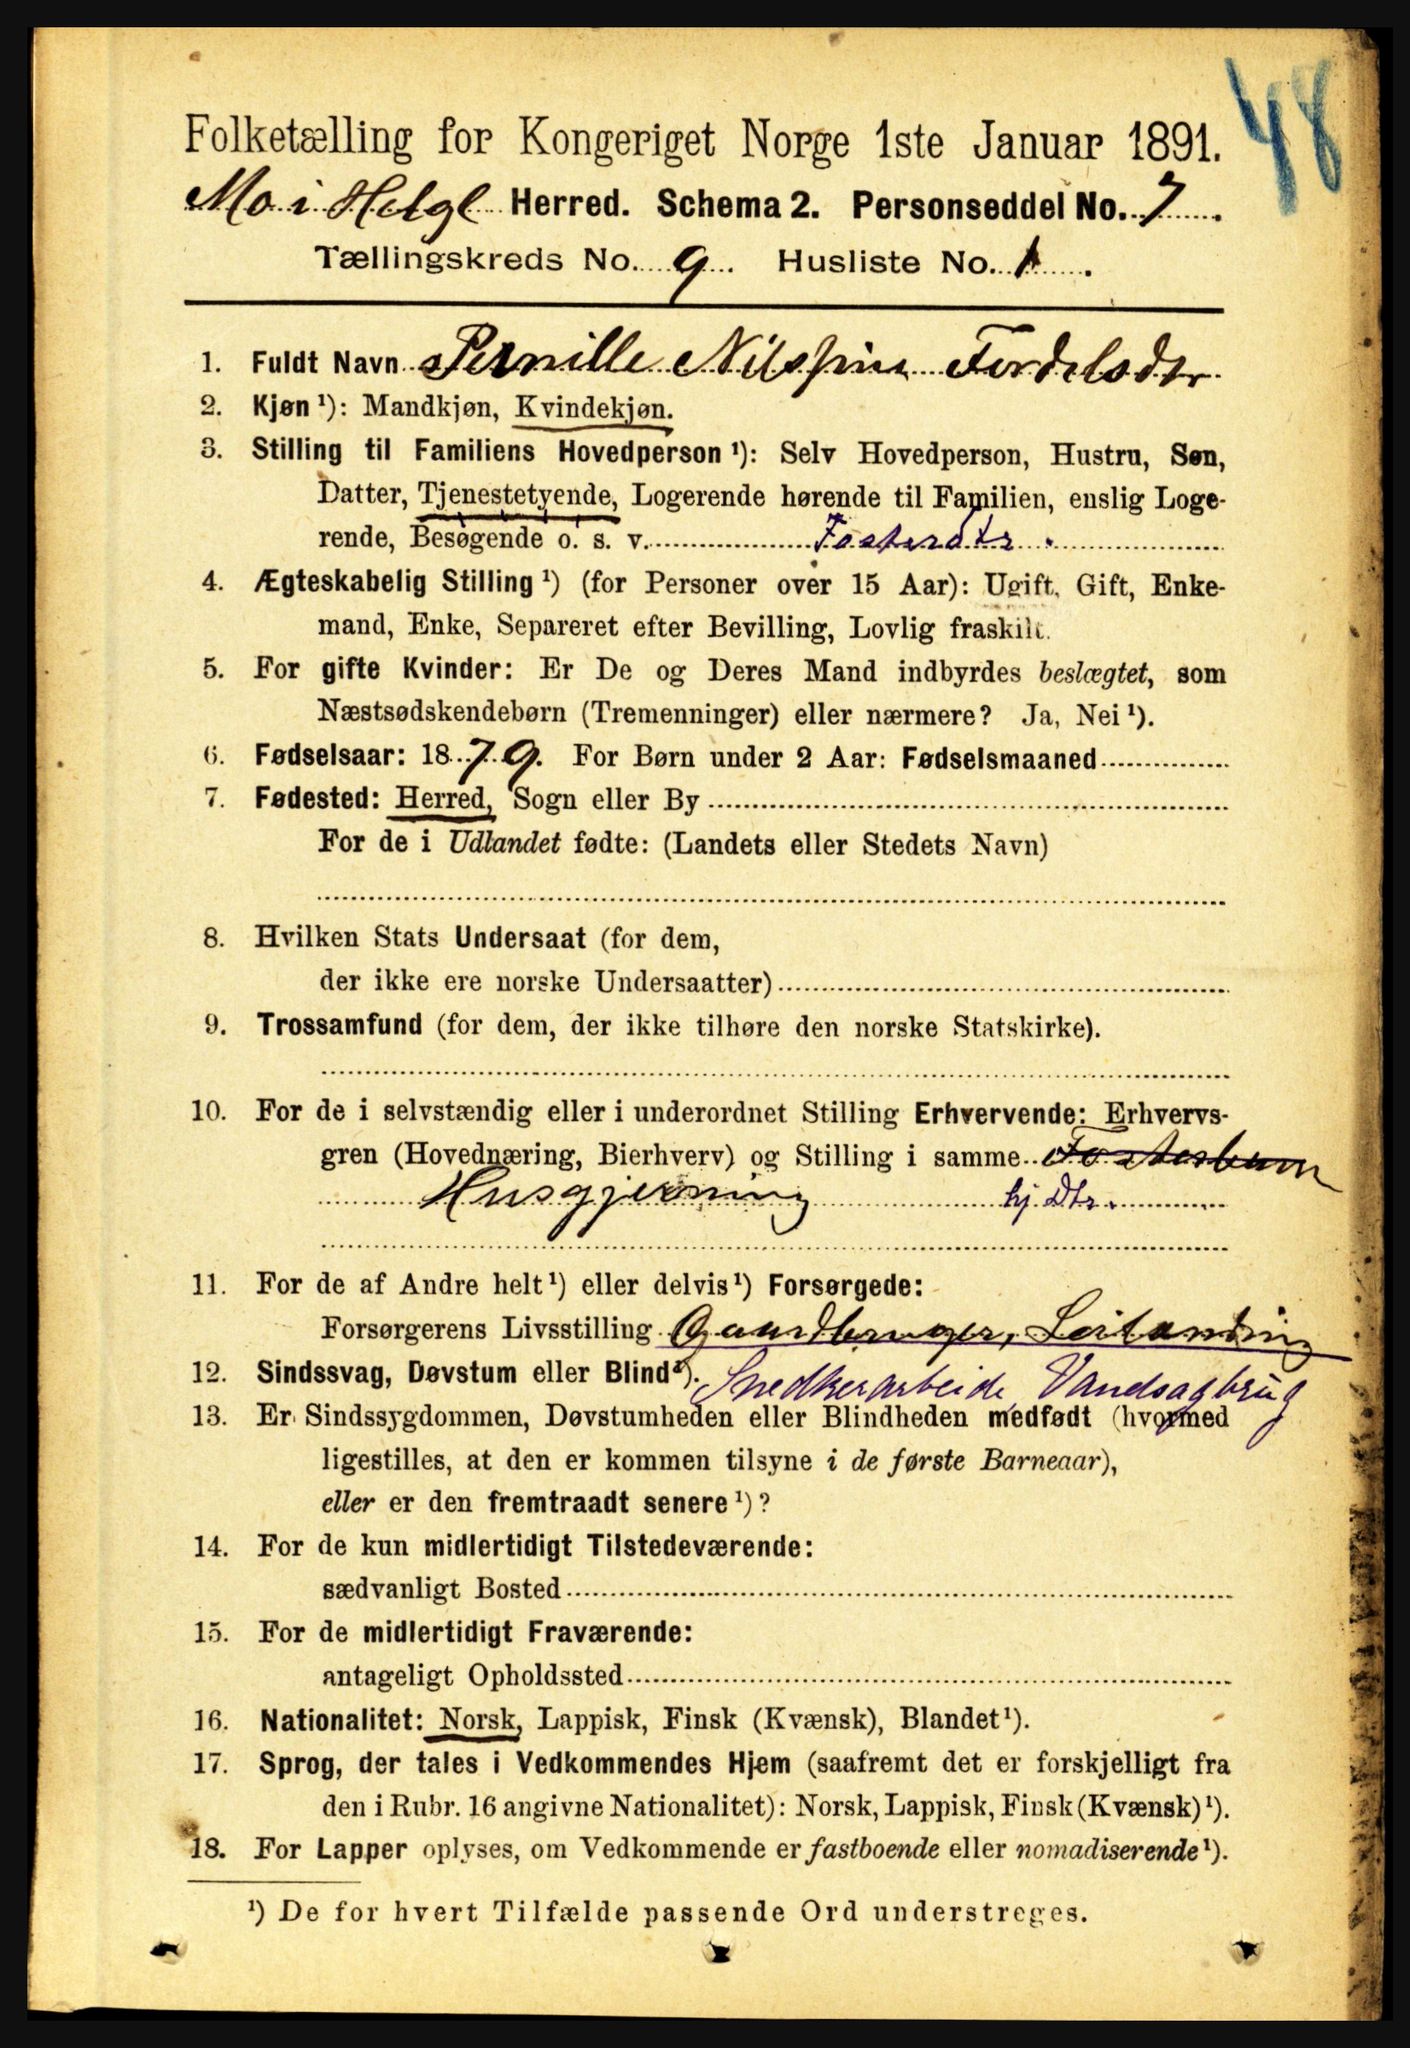 48
Folketælling for Kongeriget Norge 1ste Januar 1891.
Mo i Helgl Herred. Schema 2. Personseddel No. 7.
Tællingskreds No. 9. Husliste No. 1.
1. Fuldt Navn Pernille Fordelsdtr
2. Kjøn ¹): Mandkjøn, Kvindekjøn.
3. Stilling til Familiens Hovedperson ¹): Selv Hovedperson, Hustru, Søn,
Datter, Tjenestetyende, Logerende hørende til Familien, enslig Loge-
rende, Besøgende o. s. v. Fosterdtr.
4. Ægteskabelig Stilling ¹) (for Personer over 15 Aar): Ugift, Gift, Enke-
mand, Enke, Separeret efter Bevilling, Lovlig fraskilt.
5. For gifte Kvinder: Er De og Deres Mand indbyrdes beslægtet, som
Næstsødskendebørn (Tremenninger) eller nærmere? Ja, Nei ¹).
6. Fødselsaar: 1879. For Børn under 2 Aar: Fødselsmaaned
7. Fødested: Herred, Sogn eller By
For de i Udlandet fødte: (Landets eller Stedets Navn)
8. Hvilken Stats Undersaat (for dem,
der ikke ere norske Undersaatter)
9. Trossamfund (for dem, der ikke tilhøre den norske Statskirke).
10. For de i selvstændig eller i underordnet Stilling Erhvervende: Erhvervs-
gren (Hovednæring, Bierhverv) og Stilling i samme Fosterbarn
Husgjerning hj. Dtr.
11. For de af Andre helt ¹) eller delvis ¹) Forsørgede:
Forsørgerens Livsstilling Gaardbruger,
12. Sindssvag, Døvstum eller Blind ¹). Snedkerarbeide Vandsagbrug
13. Er Sindssygdommen, Døvstumheden eller Blindheden medfødt (hvormed
ligestilles, at den er kommen tilsyne i de første Barneaar),
eller er den fremtraadt senere ¹)?
14. For de kun midlertidigt Tilstedeværende:
sædvanligt Bosted
15. For de midlertidigt Fraværende:
antageligt Opholdssted
16. Nationalitet: Norsk, Lappisk, Finsk (Kvænsk), Blandet ¹).
17. Sprog, der tales i Vedkommendes Hjem (saafremt det er forskjelligt fra
den i Rubr. 16 angivne Nationalitet): Norsk, Lappisk, Finsk (Kvænsk) ¹).
18. For Lapper oplyses, om Vedkommende er fastboende eller nomadiserende ¹).
¹) De for hvert Tilfælde passende Ord understreges.